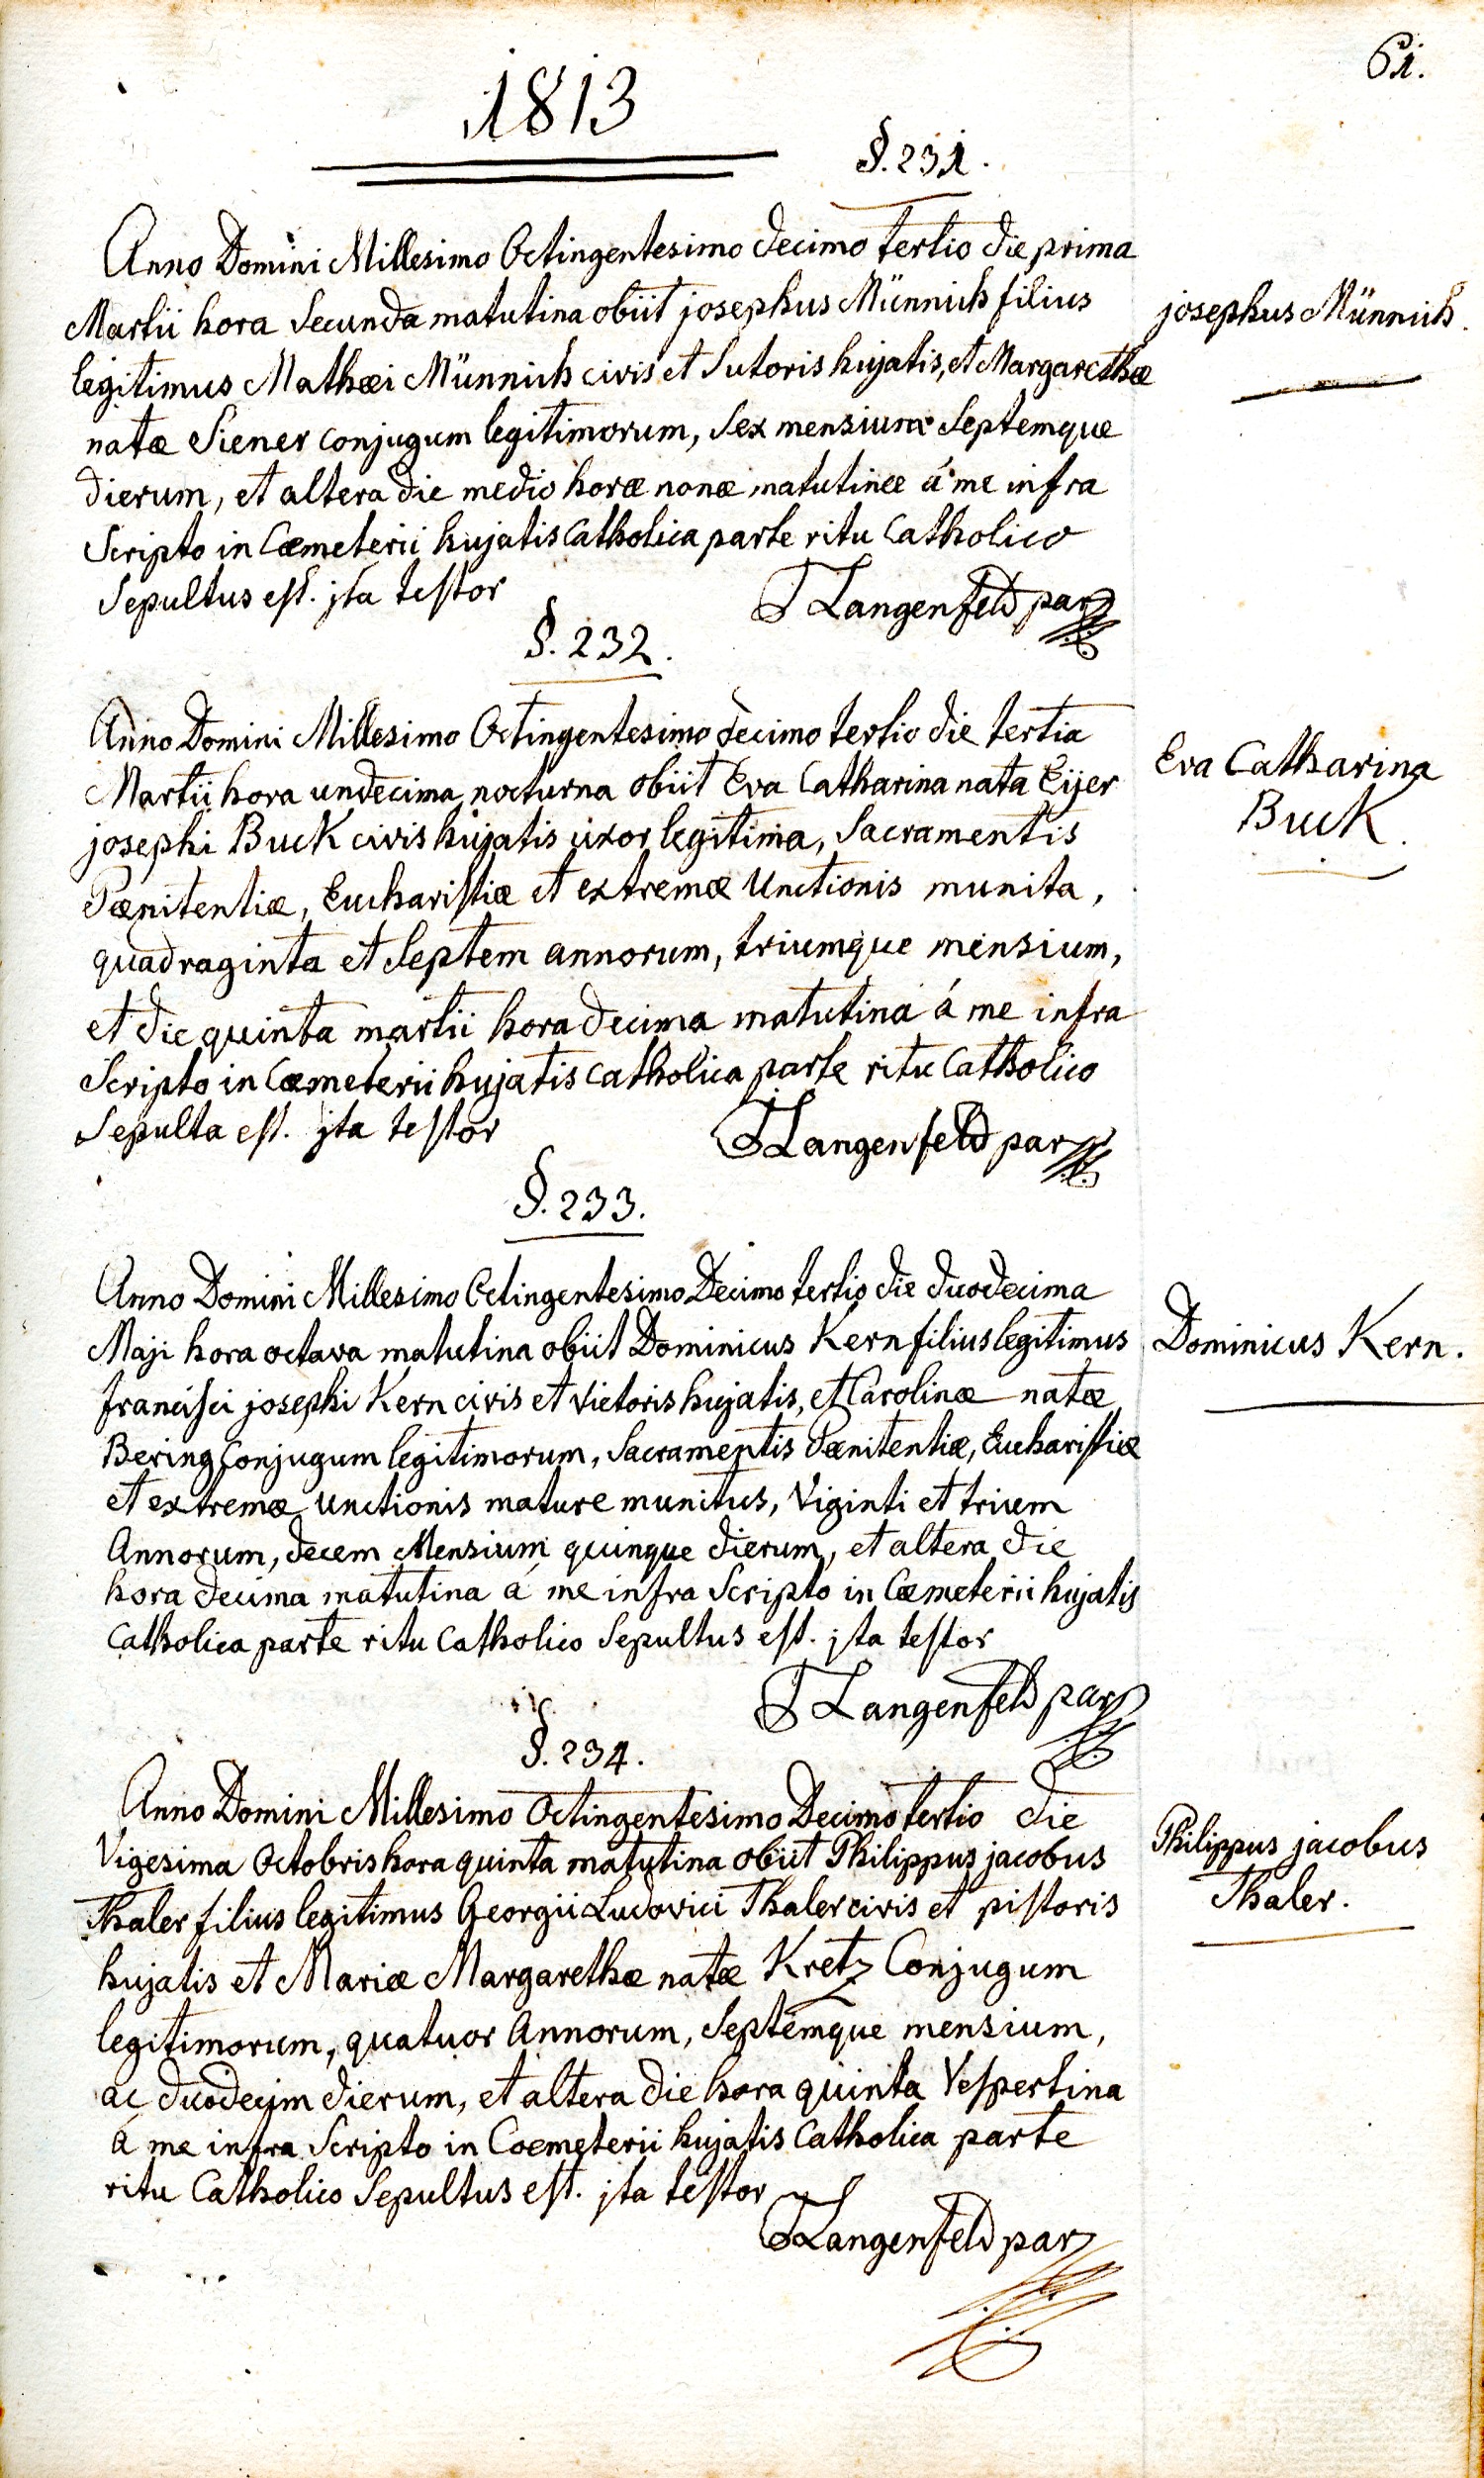 61.
1813
§. 231.
Anno Domini Millesimo Octingentesimo decimo tertio die prima
Martii hora Secunda matutina obiit josephus Münnich filius
legitimus Mathæi Münnich civis et Sutoris hujatis, et Margarethæ
natæ Siener conjugum legitimorum, Sex mensium Septemque
dierum, et altera die medio horæ nonæ matutinæ á me infra
Scripto in Cœmeterii hujatis Catholica parte ritu Catholico
Sepultus est. jta testor
Langenfeld par
josephus Münnich.
§. 232.
Anno Domini Millesimo Octingentesimo decimo tertio die tertia
Martii hora undecima nocturna obiit Eva Catharina nata Eijer
josephi Buck civis hujatis uxor legitima, Sacramentis
Pœnitentiæ, Eucharistiæ et extremæ Unctionis munita,
quadraginta et Septem annorum, triumque mensium,
et die quinta martii hora decima matutina á me infra
Scripto in Cœmeterii hujatis catholica parte ritu Catholico
Sepulta est. jta testor
Langenfeld par
Eva Catharina
Buck.
§. 233.
Anno Domini Millesimo Octingentesimo Decimo tertio die duodecima
Maji hora octava matutina obiit Dominicus Kern filius legitimus
francisci josephi Kern civis et vietoris hujatis, et Carolinæ natæ
Bering conjugum legitimorum, Sacramentis Pœnitentiæ, Eucharistiæ
et extremæ unctionis mature munitus, Viginti et trium
Annorum, decem Mensium quinque dierum, et altera die
hora decima matutina á me infra Scripto in Cœmeterii hujatis
Catholica parte ritu Catholico Sepultus est. jta testor
Langenfeld par
Dominicus Kern.
§. 234.
Anno Domini Millesimo Octingentesimo Decimo tertio die
Vigesima Octobris hora quinta matutina obiit Philippus jacobus
Thaler filius legitimus Georgii Ludovici Thaler civis et pistoris
hujatis et Mariæ Margarethæ natæ Kretz Conjugum
legitimorum, quatuor Annorum, Septemque mensium,
ac duodecim dierum, et altera die hora quinta Vespertina
á me infra Scripto in Coemeterii hujatis Catholica parte
ritu Catholico Sepultus est. jta testor
Langenfeld par
Philippus jacobus
Thaler.